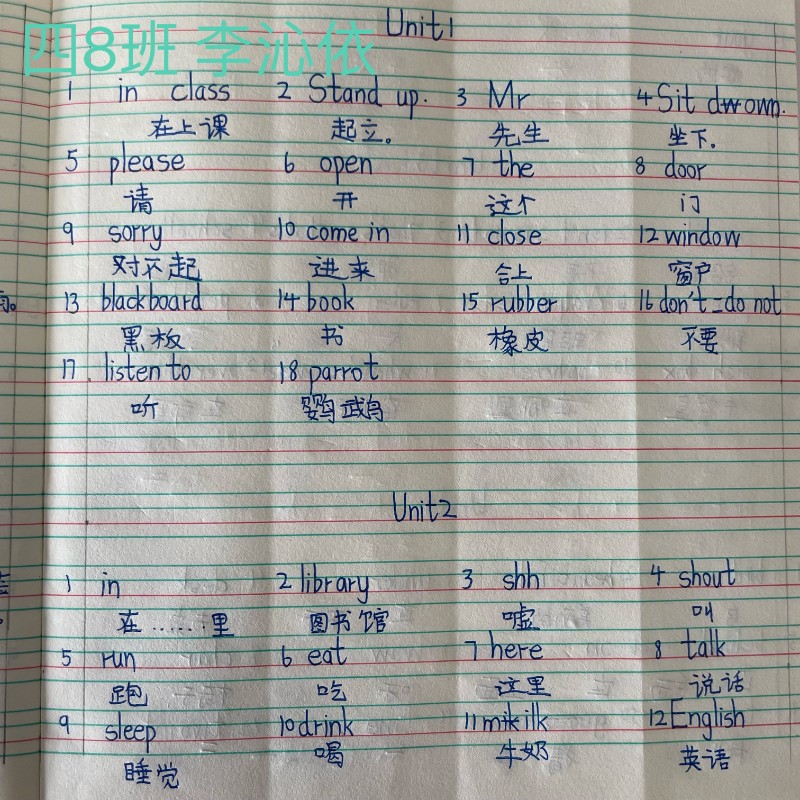 四8班 李沁依
Unit1
1 in class 2 Stand up. 3 Mr 4 Sit down.
在上课 起立。 先生 坐下.
5 please 6 open 7 the 8 door
请 开 这个 门
9 sorry 10 come in 11 close 12 window
对不起 进来 合上 窗户
13 blackboard 14 book 15 rubber 16 don't=do not
黑板 书 橡皮 不要
17 listen to 18 parrot
听 鹦鹉
Unit2
1 in 2 library 3 shh 4 shout
在……里 图书馆 嘘 叫
5 run 6 eat 7 here 8 talk
跑 吃 这里 说话
9 sleep 10 drink 11 milk 12 English
睡觉 喝 牛奶 英语